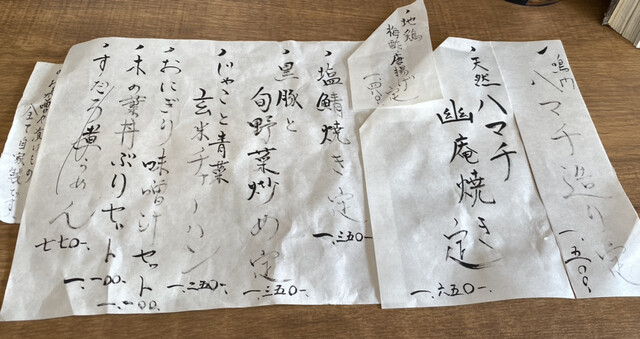 鳴門
ハマチ造り定
一.五〇〇
・天然ハマチ
幽庵焼き定
一.六五〇
・地鶏
梅酢唐揚げ定
・塩鯖焼き定
一.三五〇
・黒豚と
旬野菜炒め定
一.三五〇
・じゃこと青菜
玄米チャーハン
一.二五〇
・おにぎり味噌汁セット
一.一〇〇
・木の葉丼ぶりセット
一.一〇〇
・すだち煮うめん
七七〇